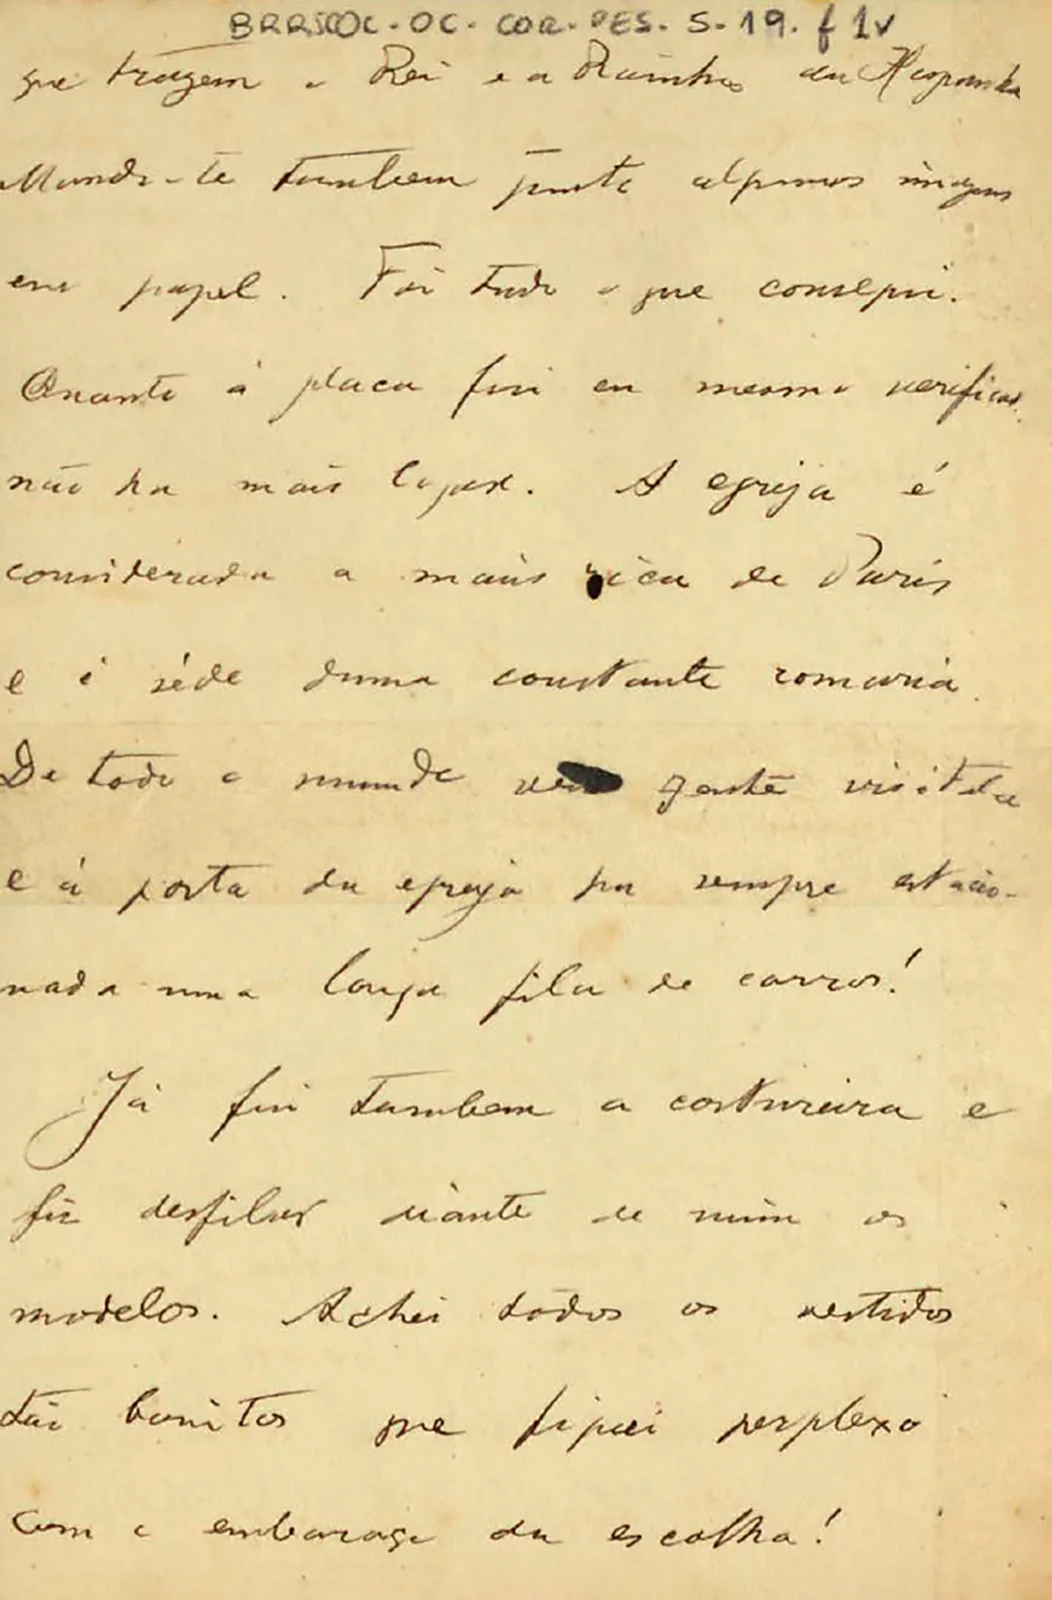 BRRJCOC-OC-COR-PES. S-19. f 1v
que trazem o Rei e a Rainha da Hespanha
Mando-te tambem junto algumas imagens
em papel. Foi tudo o que consegui.
Quanto á placa fui eu mesmo verificar
não ha mais logar. A egreja é
considerada a mais rica de Paris
e é séde duma constante romaria.
De todo o mundo vem gente visital-a
e á porta da egreja ha sempre estacio-
nada uma longa fila de carros!
Já fui tambem a costureira e
fiz desfilar diante de mim os
modelos. Achei todos os vestidos
tão bonitos que fiquei perplexo
com o embaraço da escolha!